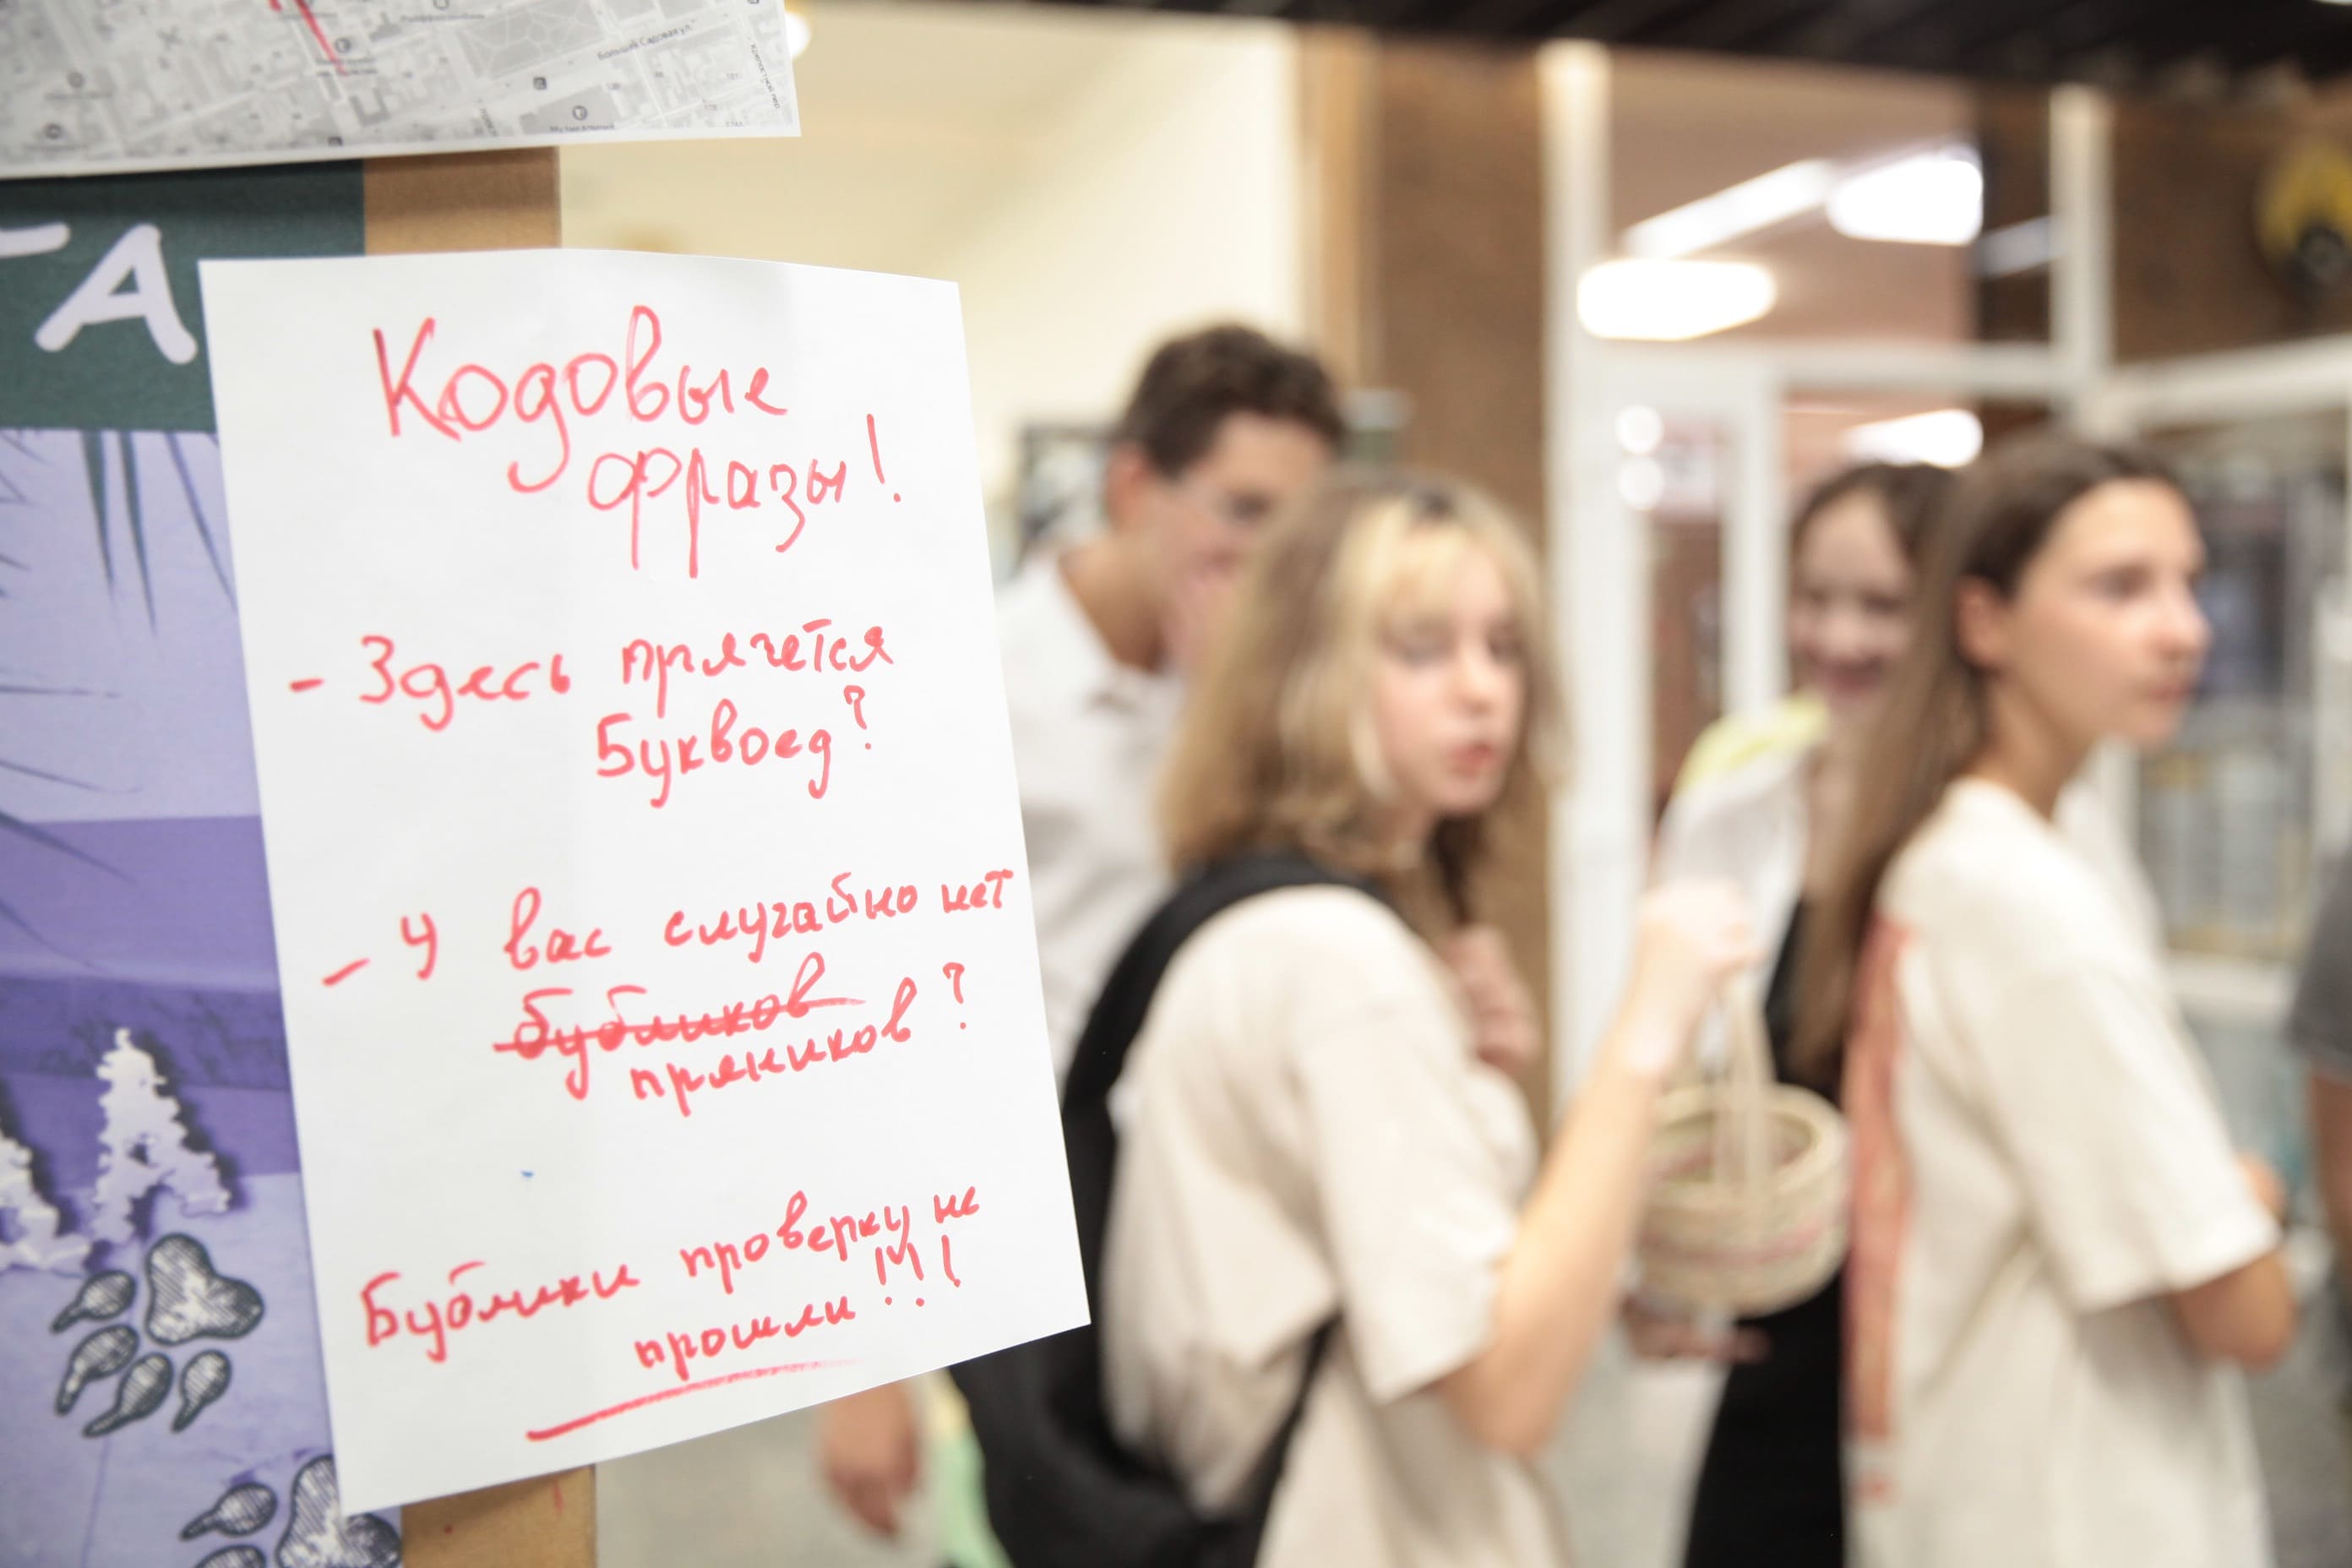 Большая Садовая ул.
ТА
Кодовые
фразы!
- Здесь прячется
Буквоед?
- У вас случайно нет
бубликов
пряников?
Бублики проверку не
прошли!!!